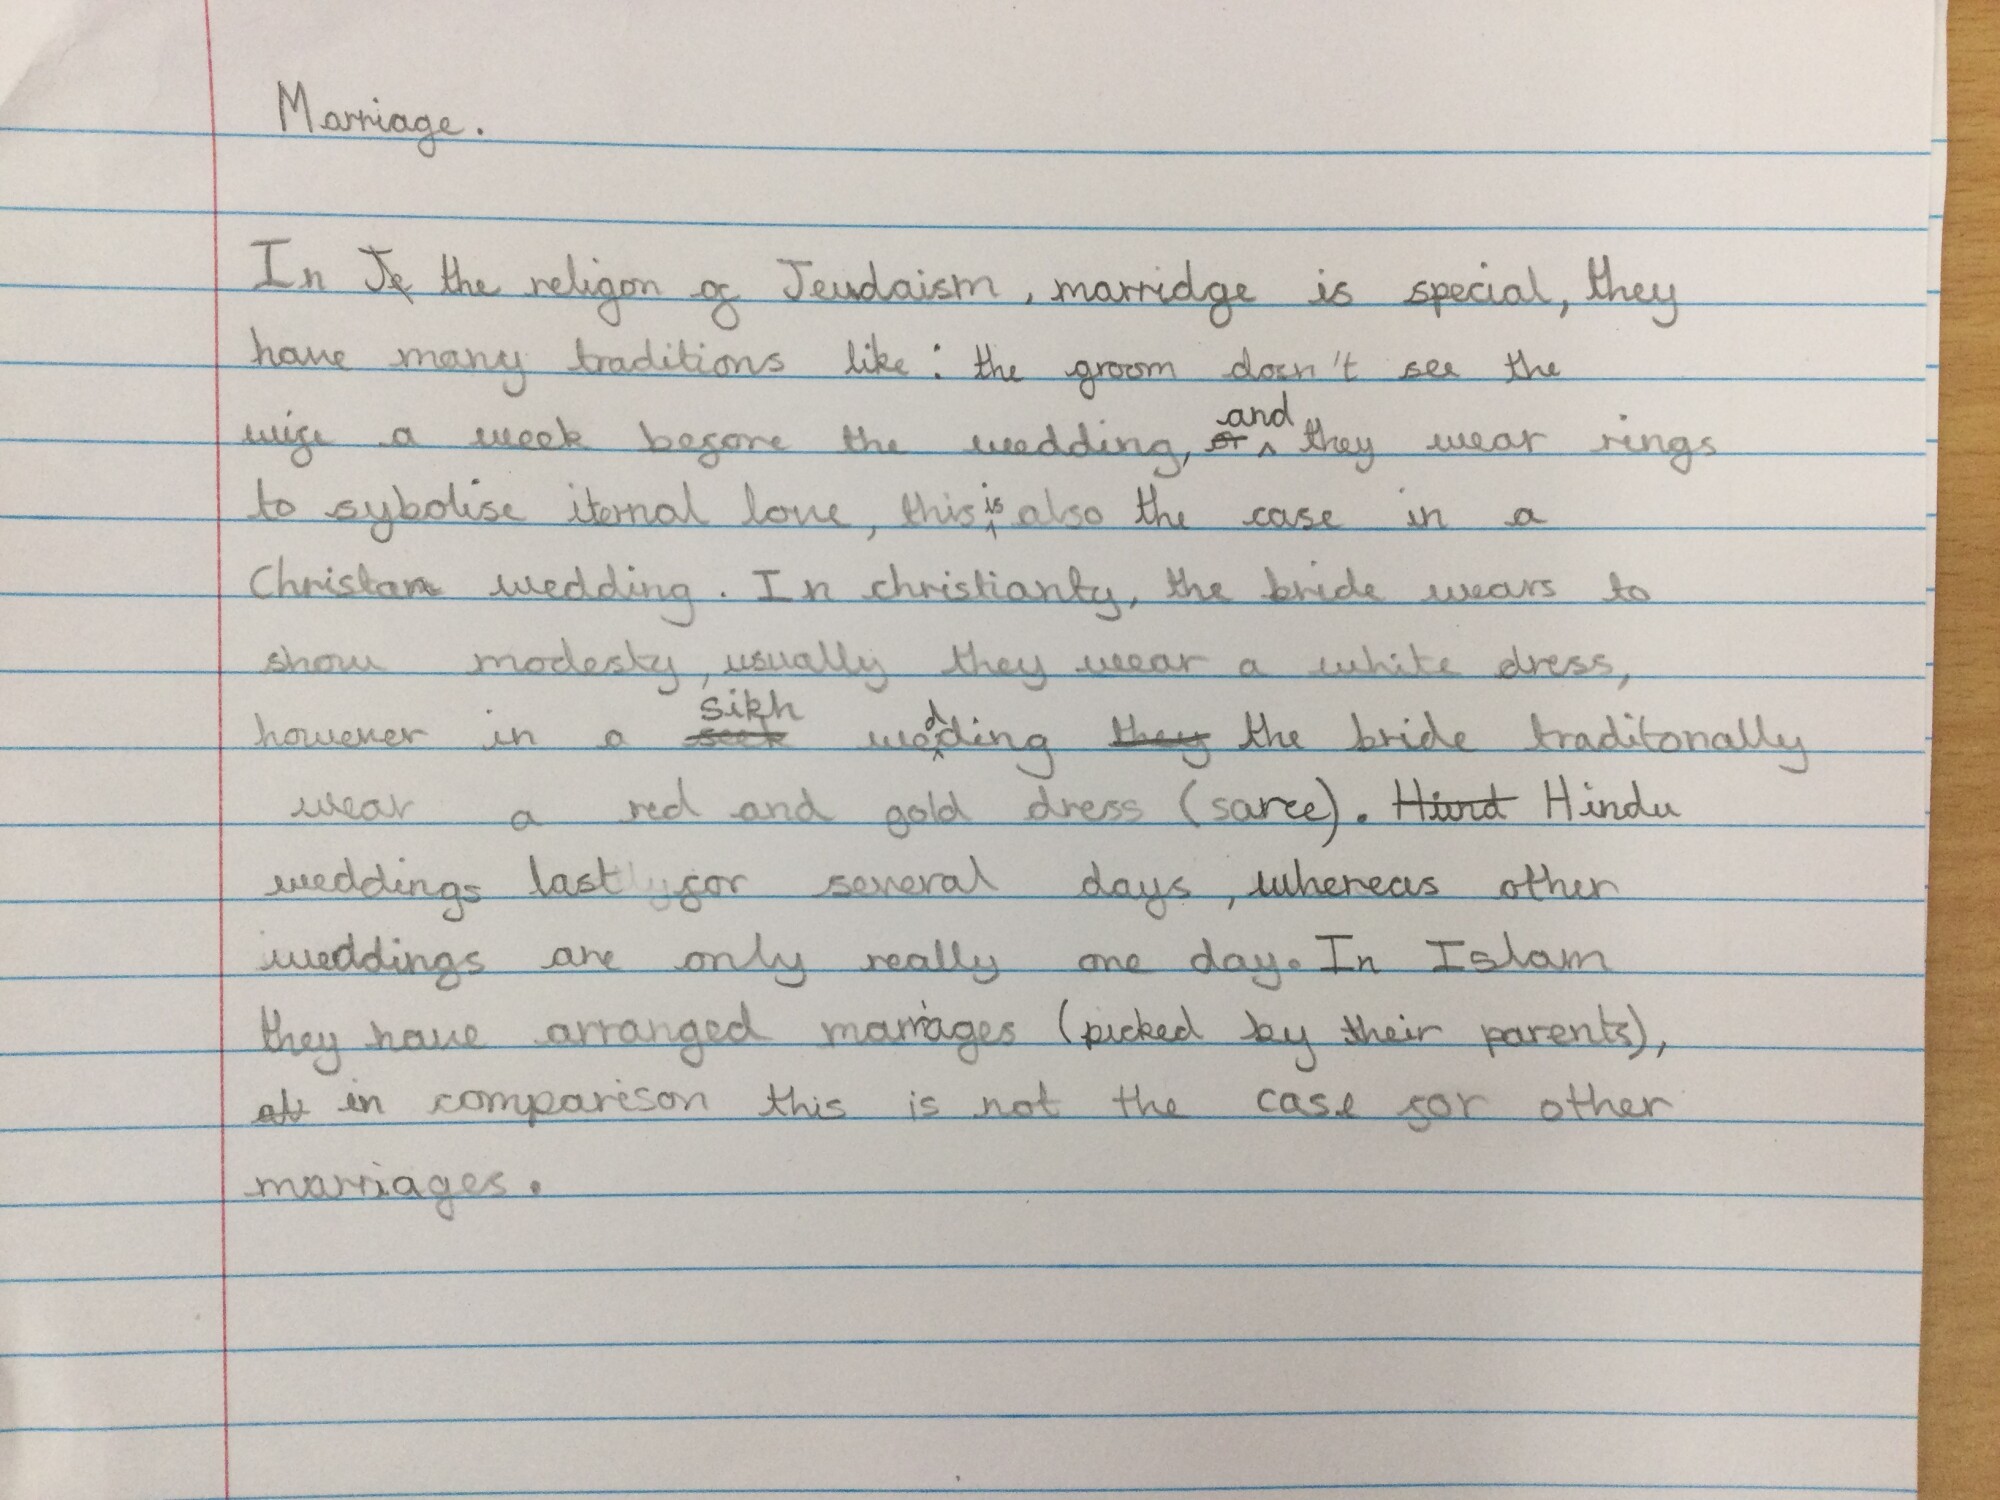 Marriage.
In Je the religon of Jeudaism, marridge is special, they
have many traditions like: the groom doen't see the
wife a week before the wedding, or and they wear rings
to sybolise iternal love, this is also the case in a
Christan wedding. In christianty, the bride wears to
show modesty, usually they wear a white dress,
however in a seek sikh wedding they the bride traditonally
wear a red and gold dress (saree). Hind Hindu
weddings last for several days, whereas other
weddings are only really one day. In Islam
they have arranged marriages (picked by their parents),
in comparison this is not the case for other
marriages.